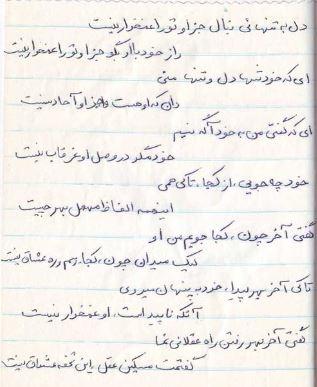 دل به تنهائی نبال جز او تو را غمخوار نیست
راز خود با او بگو جز او تو را غمخوار نیست
ای که خود تنها دل و تنها منی
دان که او هست و جز او آحاد نیست
ای که گفتی من به خود آگه نیم
خود مگر در وصل او غرقاب نیست
خود چه جویی، از کجا، تا کی همی
اینهمه الفاظ مهمل بهر چیست
گفتی آخر چون، کجا جویم من او
لیک میدان چون، کجا، رسم ره عشاق نیست
تا کی آخر بهر پیدا، خود به پنهان میروی
آنکه ناپیداست، او غمخوار نیست
گفتی آخر بهر رفتن راه عقلانی نما
گفتمت مسکین عقل، این تحفه عشاق نیست